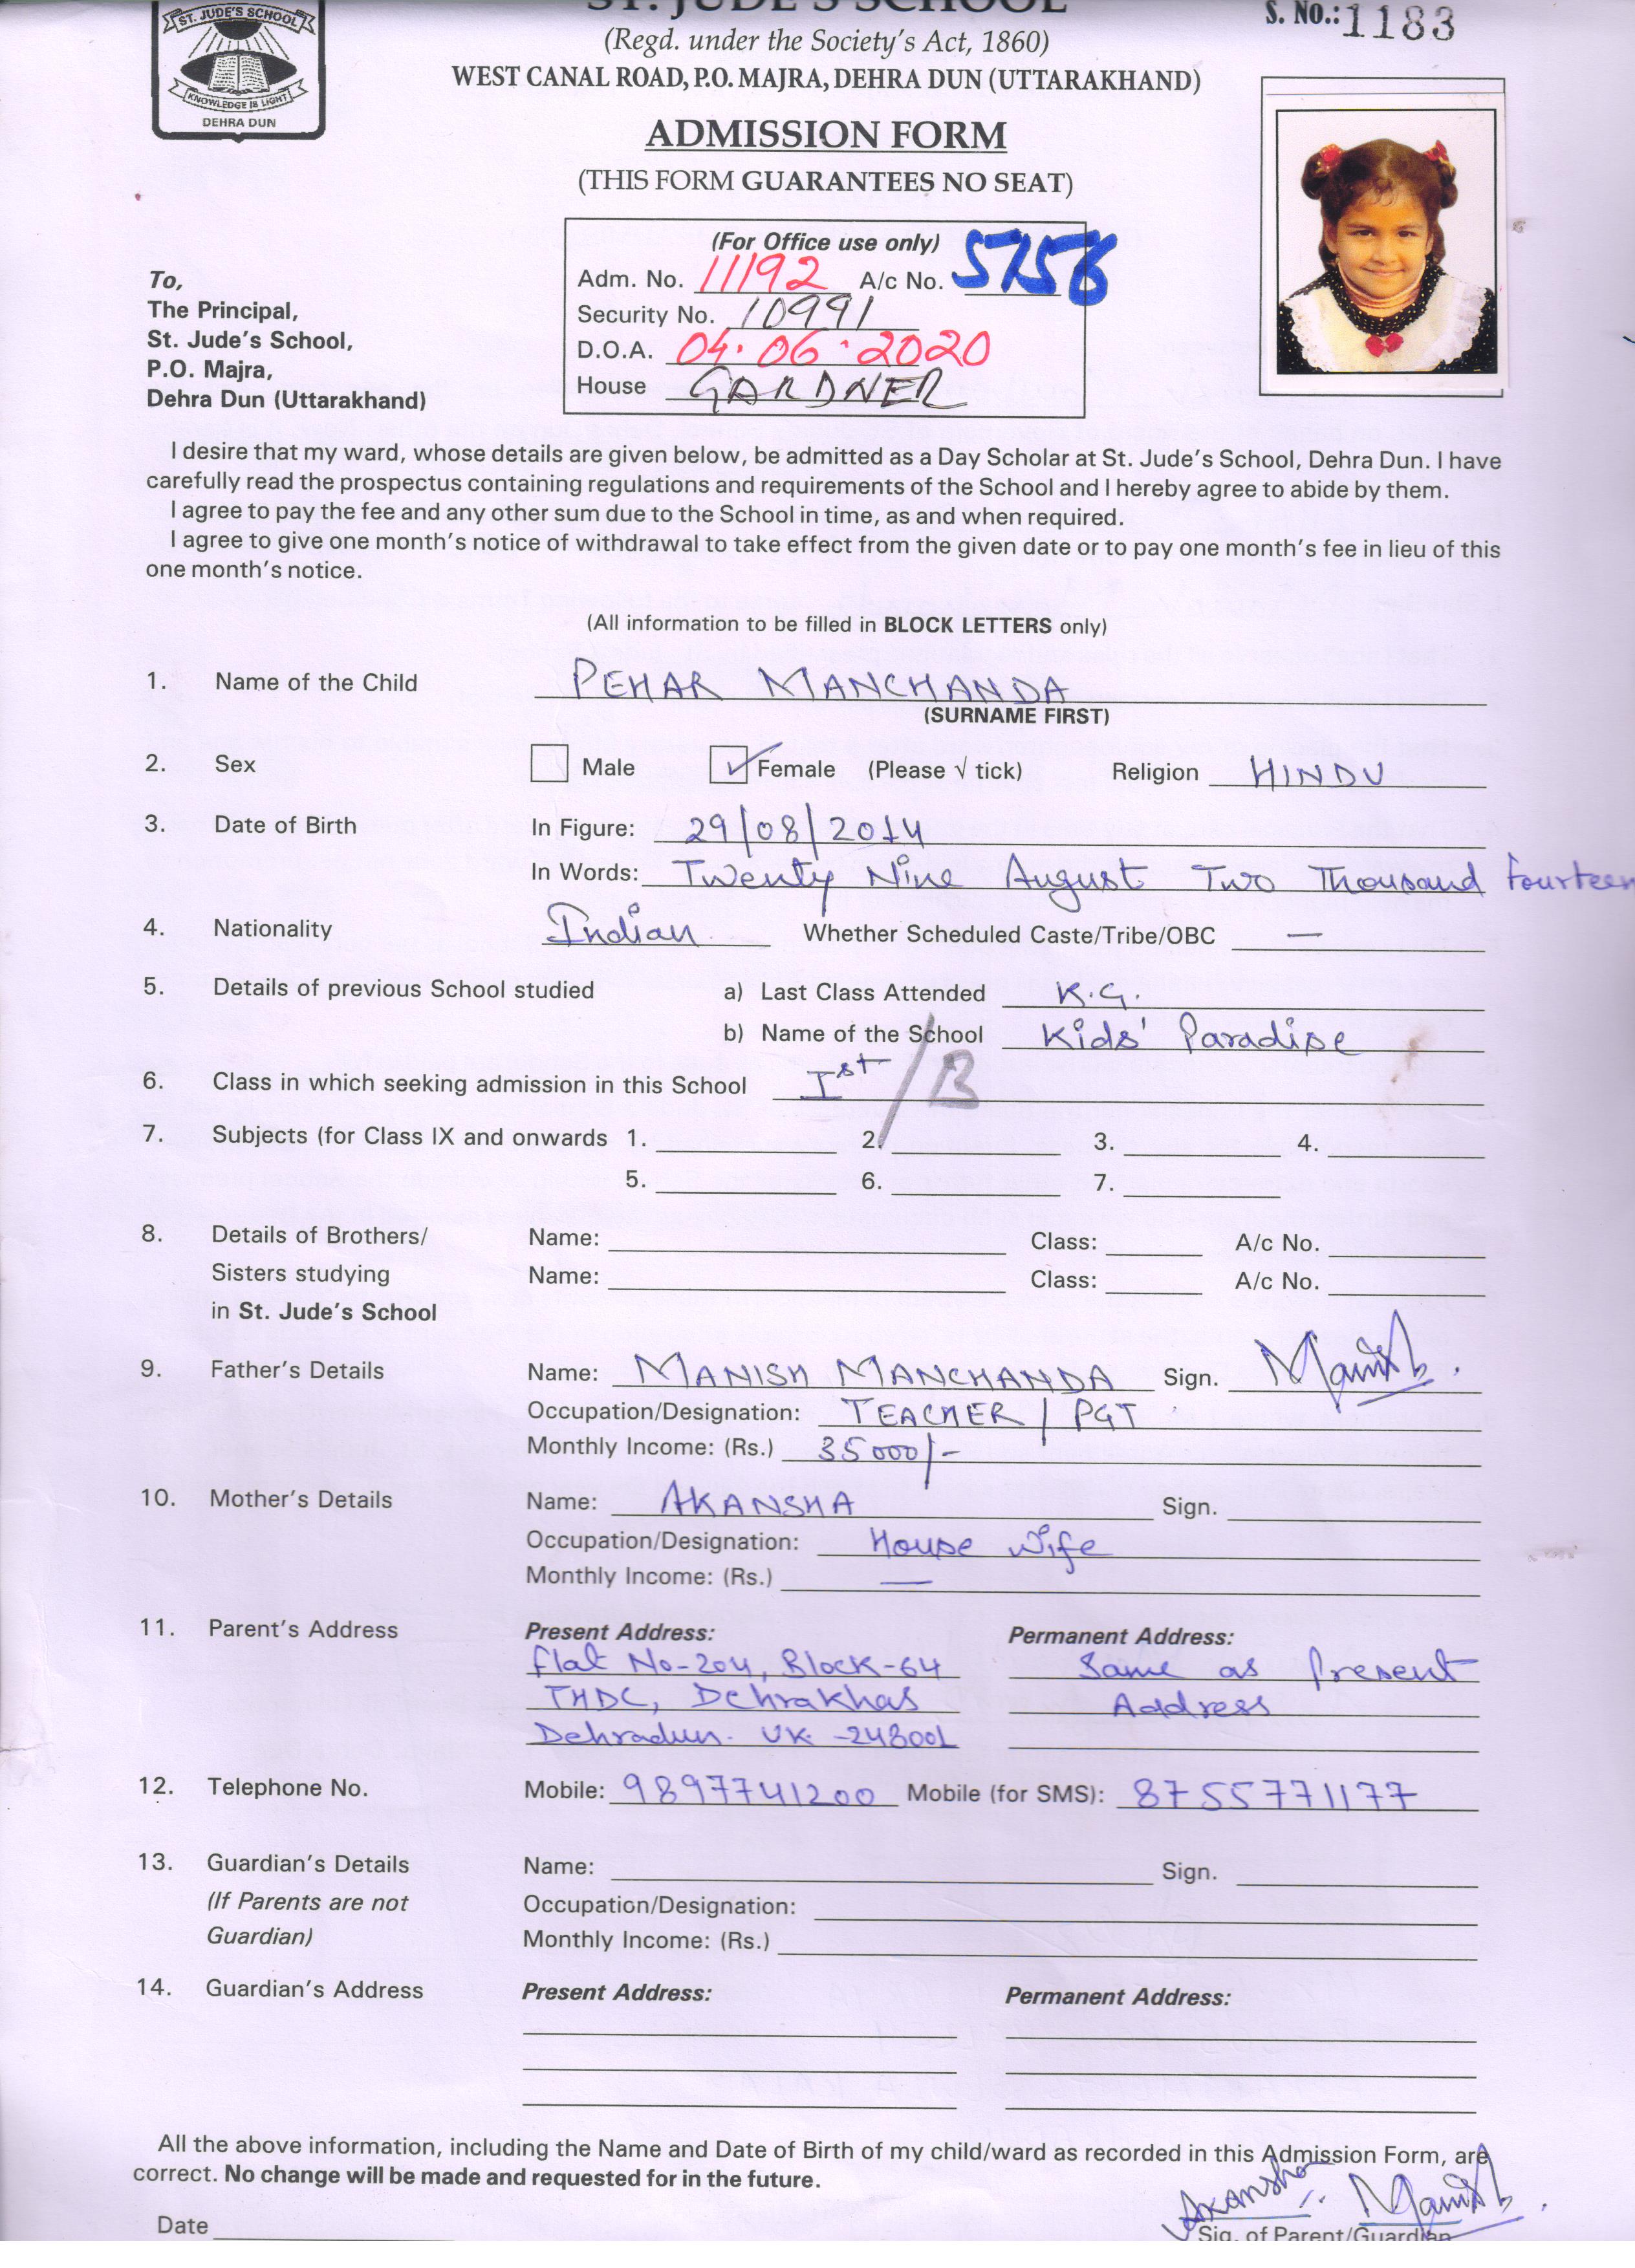 ST. JUDE'S SCHOOL
KNOWLEDGE IS LIGHT
DEHRA DUN
ST. JUDE'S SCHOOL
S. NO.: 1183
(Regd. under the Society's Act, 1860)
WEST CANAL ROAD, P.O. MAJRA, DEHRA DUN (UTTARAKHAND)
ADMISSION FORM
(THIS FORM GUARANTEES NO SEAT)
(For Office use only)
Adm. No. 11192 A/c No. 5756
Security No. 10991
D.O.A. 04.06.2020
House GARDNER
To,
The Principal,
St. Jude's School,
P.O. Majra,
Dehra Dun (Uttarakhand)
I desire that my ward, whose details are given below, be admitted as a Day Scholar at St. Jude's School, Dehra Dun. I have
carefully read the prospectus containing regulations and requirements of the School and I hereby agree to abide by them.
I agree to pay the fee and any other sum due to the School in time, as and when required.
I agree to give one month's notice of withdrawal to take effect from the given date or to pay one month's fee in lieu of this
one month's notice.
(All information to be filled in BLOCK LETTERS only)
1. Name of the Child PEHAR MANCHANDA
(SURNAME FIRST)
2. Sex Male ✓ Female (Please √ tick) Religion HINDU
3. Date of Birth In Figure: 29/08/2014
In Words: Twenty Nine August Two Thousand Fourteen
4. Nationality Indian Whether Scheduled Caste/Tribe/OBC —
5. Details of previous School studied a) Last Class Attended K.G.
b) Name of the School Kids' Paradise
6. Class in which seeking admission in this School Ist /B
7. Subjects (for Class IX and onwards 1. 2. 3. 4.
5. 6. 7.
8. Details of Brothers/ Name: Class: A/c No.
Sisters studying Name: Class: A/c No.
in St. Jude's School
9. Father's Details Name: MANISH MANCHANDA Sign. Manish.
Occupation/Designation: TEACHER / PGT
Monthly Income: (Rs.) 35000/-
10. Mother's Details Name: AKANSHA Sign.
Occupation/Designation: House Wife
Monthly Income: (Rs.) —
11. Parent's Address Present Address: Permanent Address:
Flat No-204, Block-64 Same as Present
THDC, Dehrakhas Address
Dehradun. UK -248001
12. Telephone No. Mobile: 9897741200 Mobile (for SMS): 8755771177
13. Guardian's Details Name: Sign.
(If Parents are not Occupation/Designation:
Guardian) Monthly Income: (Rs.)
14. Guardian's Address Present Address: Permanent Address:
All the above information, including the Name and Date of Birth of my child/ward as recorded in this Admission Form, are
correct. No change will be made and requested for in the future.
Akansha Manish.
Date Sig. of Parent/Guardian